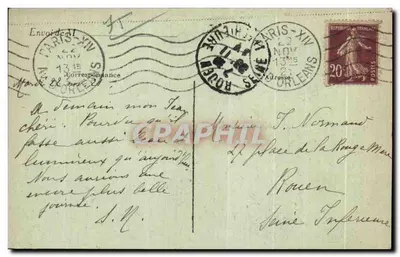 PARIS-XIV
AV. D'ORLEANS
13 15
ROUEN
SEINE INFERIEURE
PARIS-XIV
NOV
13 15
AV. D'ORLEANS
20
POSTES
Correspondance
Adresse
Mardi
A demain mon Jean
chéri. Pourvu qu'il
fasse aussi beau et
lumineux qu'aujourd'hui
Nous aurons une
encore plus belle
journée.
S. N.
Monsieur J. Normand
27 place de la Rouge Mare
Rouen
Seine Inférieure
CPARTPHIL